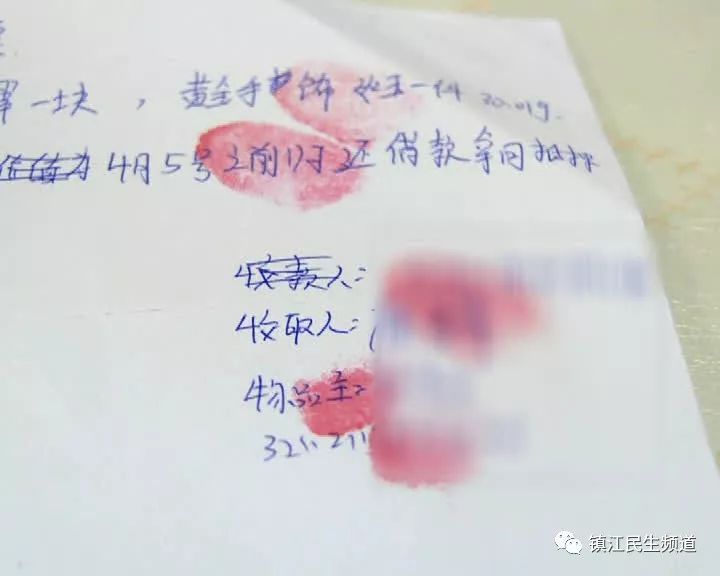 一块，黄金手饰 一件 20.01g.
4月5号之前归还借款拿回抵押
收款人：
收取人：
物品主：
321121
镇江民生频道